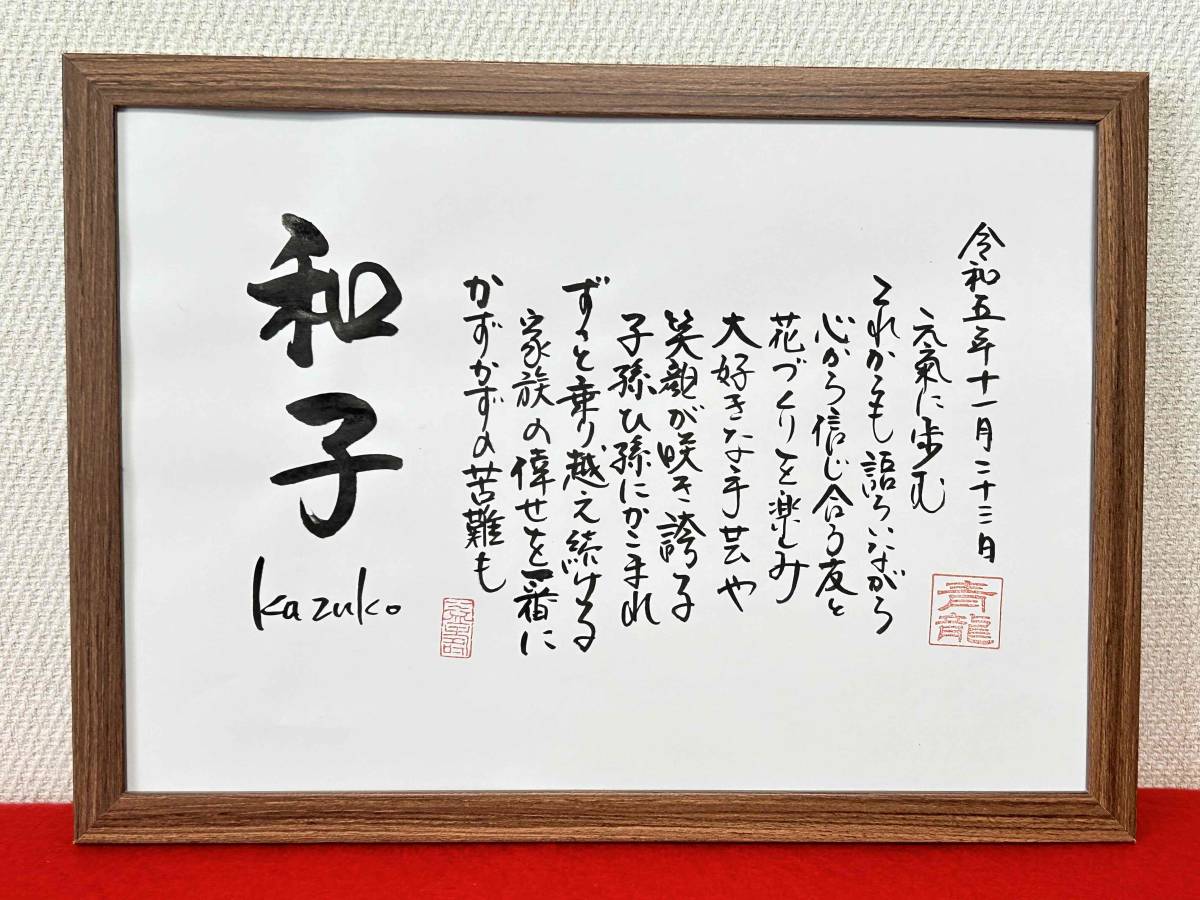 和子
kazuko
かずかずの苦難も
家族の倖せを一番に
ずっと乗り越え続ける
子孫ひ孫にかこまれ
笑顔が咲き誇る
大好きな手芸や
花づくりを楽しみ
心から信じ合う友と
これからも語らいながら
元氣に歩む
令和五年十一月二十三日